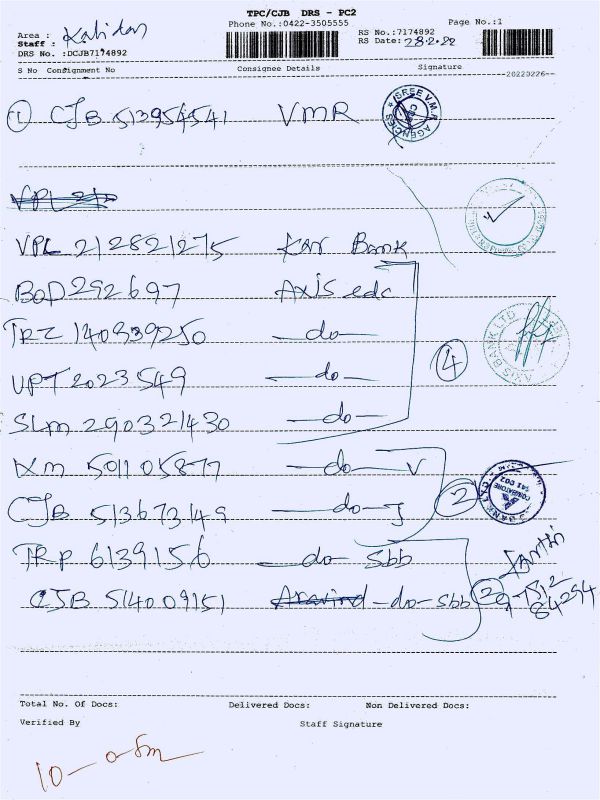 TPC/CJB DRS - PC2
Phone No.:0422-3505555
Page No.:1
Area :
Staff : Kalidas
DRS No. :DCJB7174892
RS No.:7174892
RS Date: 28.2.22
S No Consignment No Consignee Details Signature
--20220226--
① CJB 513954541 VMR
SREE V.M.R AGENCIES
VPL 212821275 Kar Bank
BOD 292697 Axis edc
TRZ 140339250 -do-
UPT 2023549 -do-
SLM 290321430 -do-
④
AXIS BANK LTD
IXM 501105877 -do- V
CJB 513673149 -do- J
②
BANK LTD
COIMBATORE
641 002
TRP 6139156 -do Sbb
CJB 514009151 -do- Sbb ②
84294
Total No. Of Docs: Delivered Docs: Non Delivered Docs:
Verified By Staff Signature